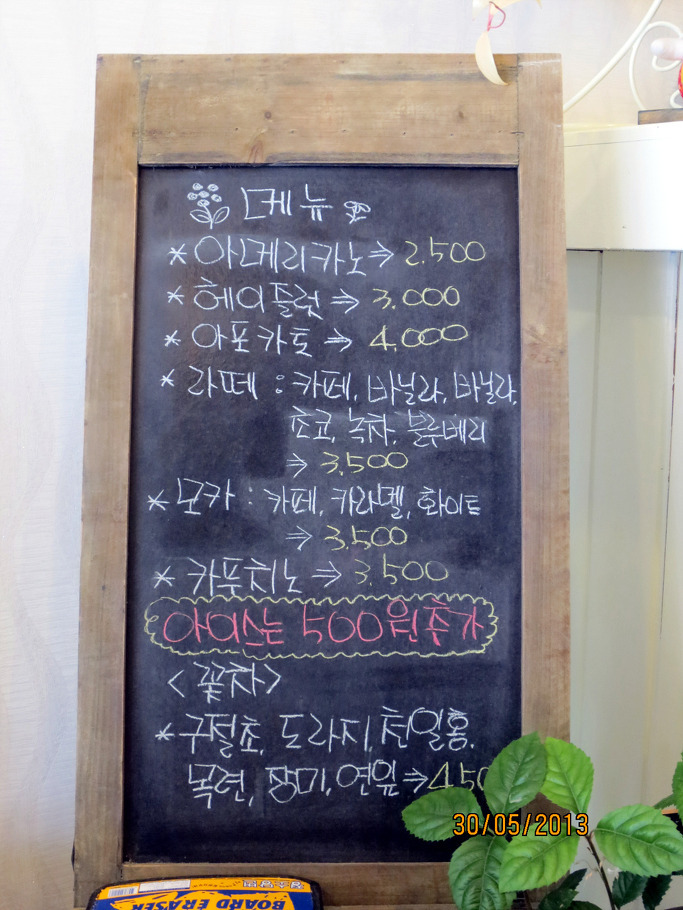 메뉴
* 아메리카노 ⇒ 2.500
* 헤이즐럿 ⇒ 3.000
* 아포카토 ⇒ 4.000
* 라떼 : 카페, 바닐라, 바닐라,
초코, 녹차, 블루베리
⇒ 3.500
* 모카 : 카페, 카라멜, 화이트
⇒ 3.500
* 카푸치노 ⇒ 3.500
아이스는 500원 추가
<꽃차>
* 구절초, 도라지, 천일홍,
목련, 장미, 연잎 ⇒ 450
30/05/2013
BOARD ERASER